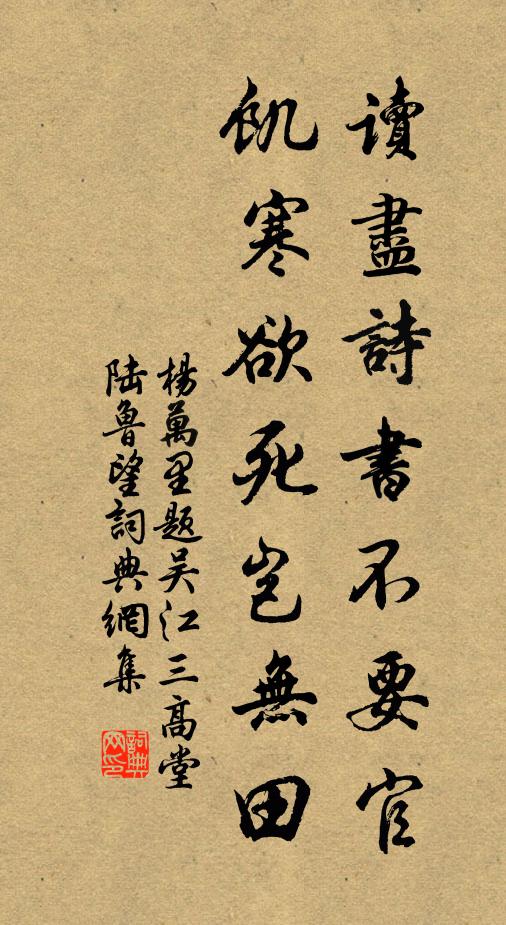 讀盡詩書不要官
飢寒欲死豈無田
楊萬里題吴江三高堂
陆魯望詞典網集
詞典网印